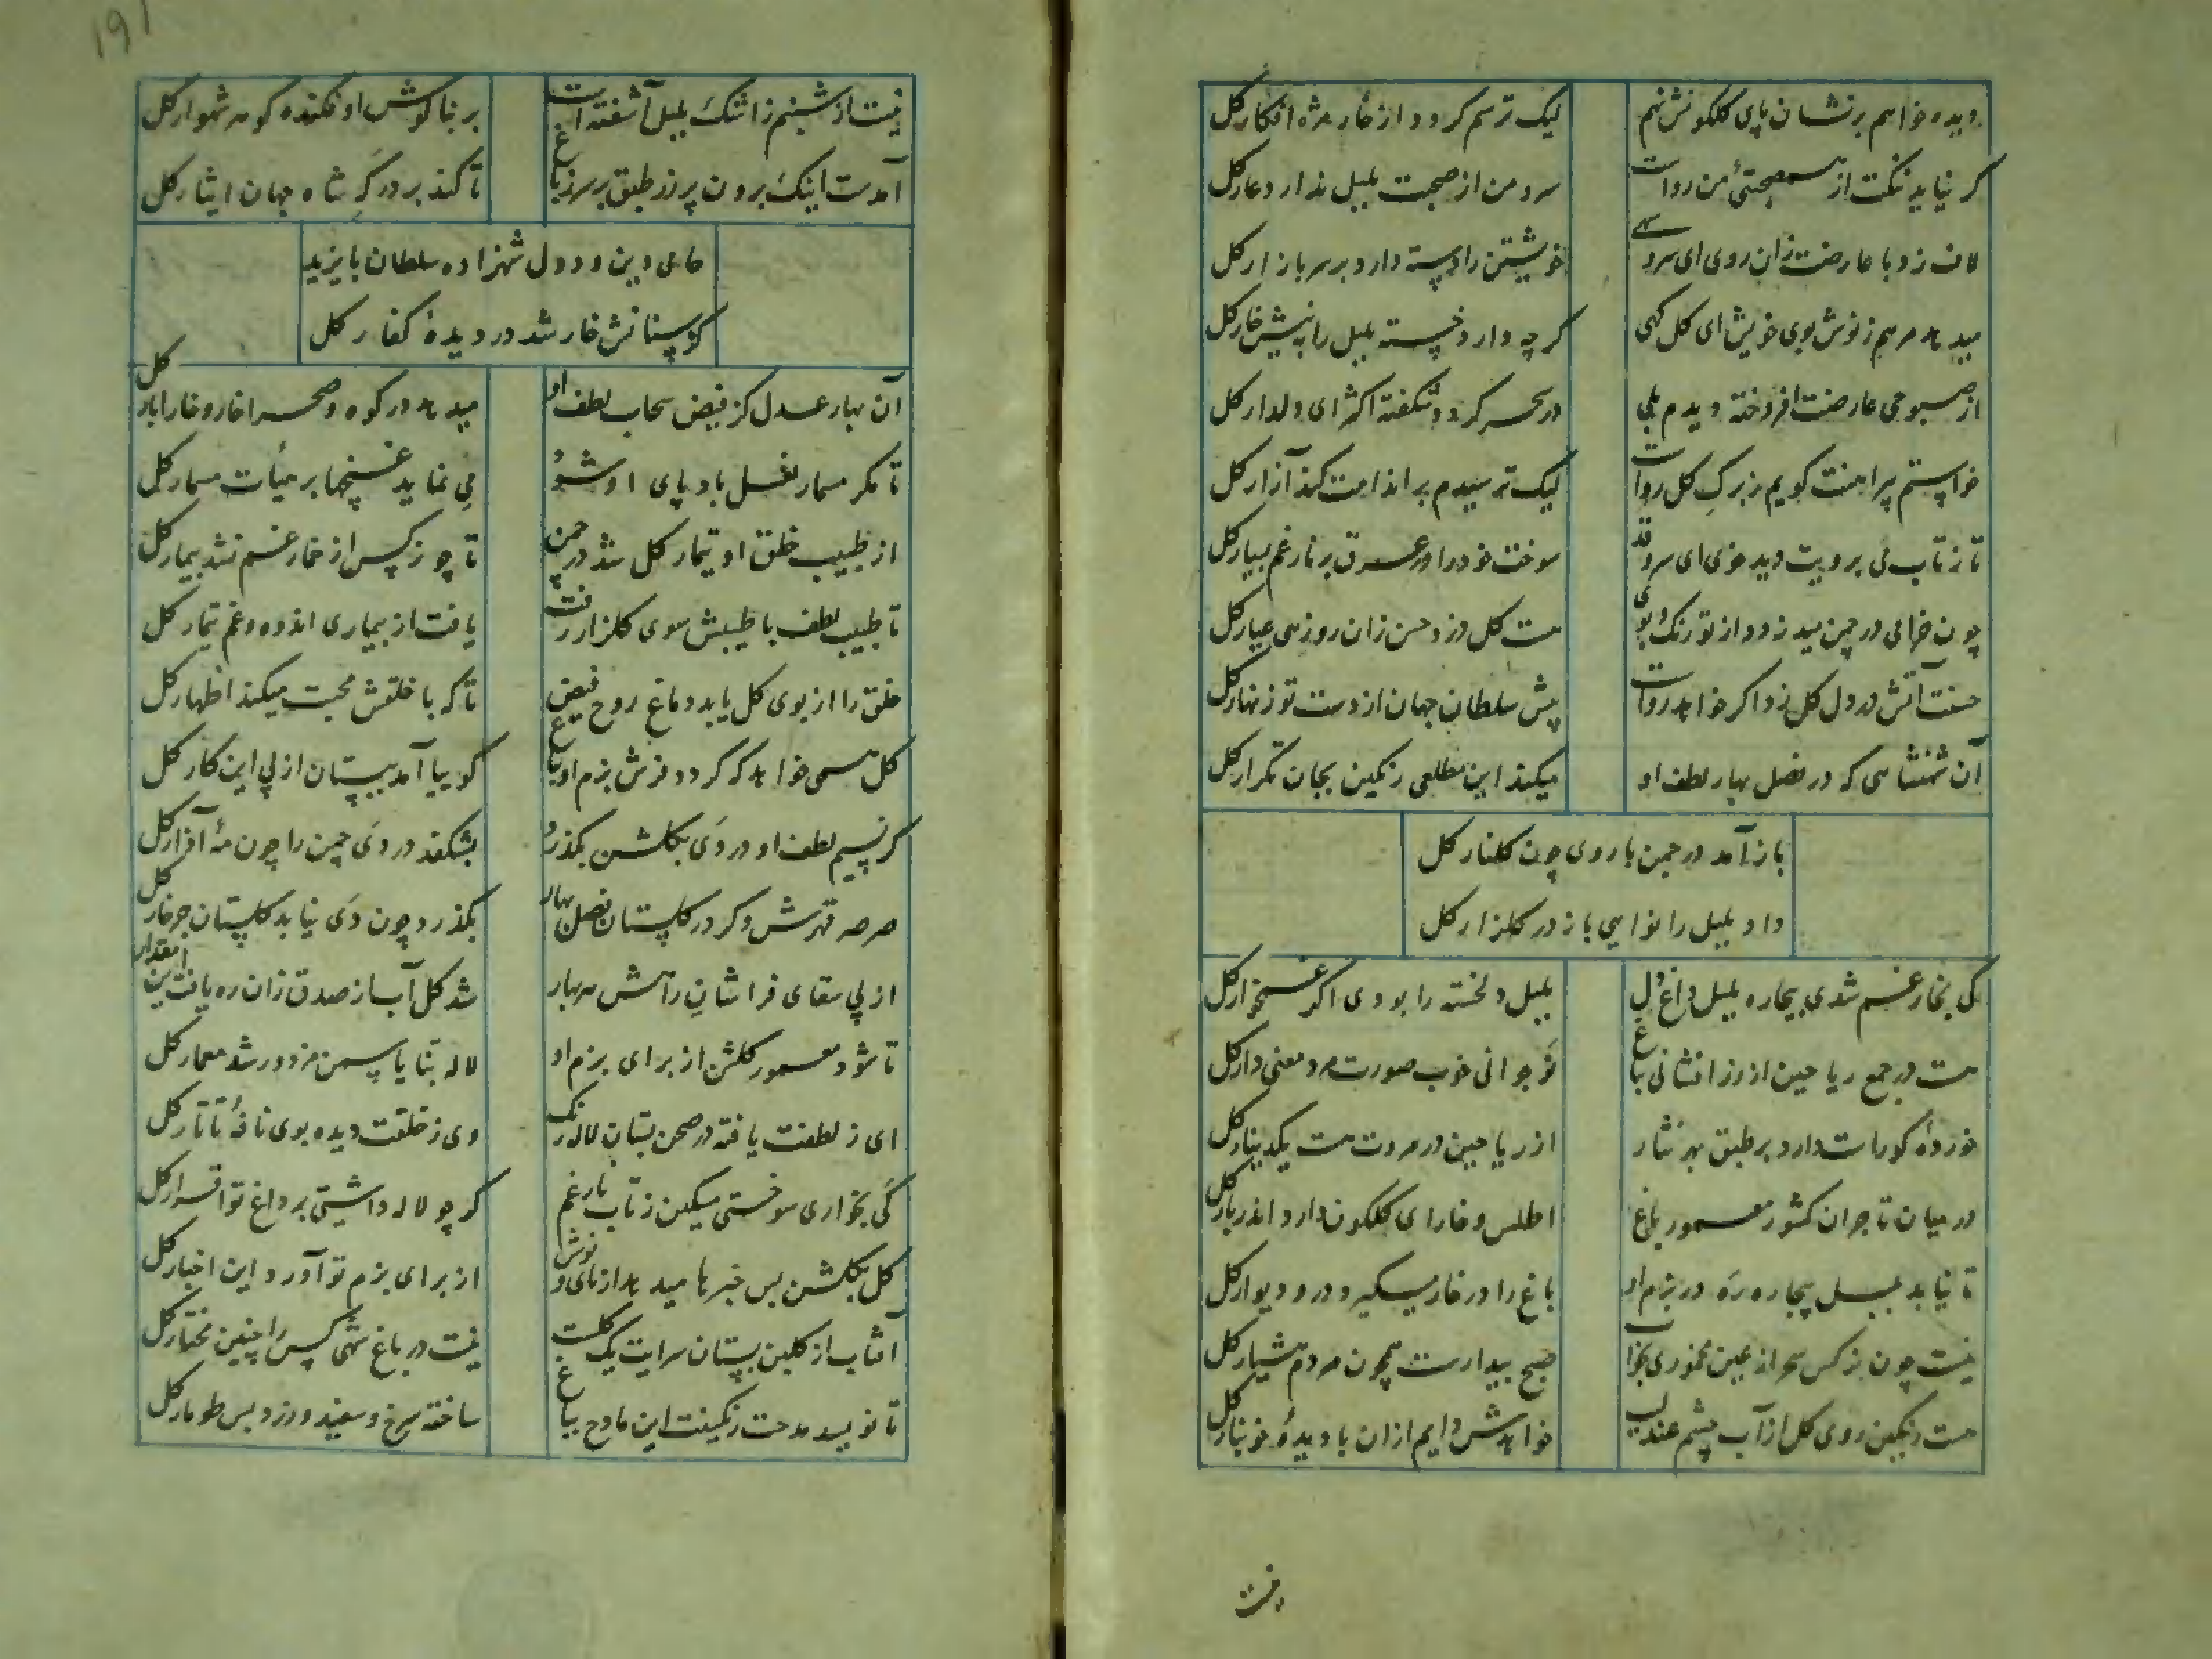 دیده خواهم بر نشان پای گلگونش نهم لیک ترسم گردد از خار مژه افکار گل
گر نیاید ننگت از همصحبتئ من رواست سرو من از صحبت بلبل ندارد عار گل
لاف زد با عارضت زان روی ای سرو سهی خویشتن را دسته دارد بر سر بازار گل
میدهد مرهم ز نوش بوی خویش ای گل گهی گرچه دارد خسته بلبل را به نیش خار گل
از صبوحی عارضت افروخته دیدم بلی در سحر گردد شکفته اکثر ای دلدار گل
خواستم پیراهنت گویم ز برگ گل رواست لیک ترسیدم بر اندامت کند آزار گل
تا ز تاب می برویت دید خوی ای سرو قد سوخت خود را در عرق بر نار غم بسیار گل
چون خرامی در چمن میدزدد از تو رنگ و بوی هست گل دزد حسن زان رو زهی عیار گل
حسنت آتش در دل گل زد اگر خواهد رواست پیش سلطان جهان از دست تو زنهار گل
آن شهنشاهی که در فصل بهار لطف او میکند این مطلعی رنگین بجان تکرار گل
باز آمد در چمن با روی چون گلنار گل
داد بلبل را نوایی باز در گلزار گل
کی بخار غم شدی بیچاره بلبل داغ دل بلبل دلخسته را بودی اگر غمخوار گل
هست در جمع ریاحین از زرافشانی بباغ نوجوانی خوب صورت مرد معنی دار گل
خورده کو راست دارد بر طبق بهر نثار از ریاحین در مروت هست یکدینار گل
در میان تاجران کشور معمور باغ اطلس و خارای گلگون دارد اندر بار گل
تا نیابد بلبل بیچاره ره در بزم او باغ را در خار میگیرد در و دیوار گل
نیست چون نرگس سحر از عین مخموری بخواب صبح بیدارست همچون مردم هشیار گل
هست رنگین روی گل از آب چشم عندلیب خواهدش دایم ازان با دیدهٔ خونبار گل
نیست
191
نیست از شبنم ز اشک بلبل آشفته است بر بناگوش او فکنده گوهر شهوار گل
آمدست اینک برون پر زر طبق بر سر ز باغ تا کند بر درگه شاه جهان ایثار گل
حامی دین و دول شهزاده سلطان بایزید
کز سنانش خار شد در دیدهٔ کفار گل
آن بهار عدل کز فیض سحاب لطف او میدهد در کوه و صحرا خار و خارا بار گل
تا مگر مسمار نعل باد پای او شود می نماید غنچها بر هیأت مسمار گل
از طبیب خلق او تیمار گل شد در چمن تا چو نرگس از خمار غم نشد بیمار گل
تا طبیب لطف با طیبش سوی گلزار رفت یافت از بیماری اندوه و غم تیمار گل
خلق را از بوی گل یابد دماغ روح فیض تا که با خلقش محبت میکند اظهار گل
گل همی خواهد که گردد فرش بزم او بباغ گوییا آمد ببستان از پی این کار گل
گر نسیم لطف او در دی بگلشن بگذرد بشکفد در دی چمن را چون مه آذار گل
صرصر قهرش وگر در گلستان فصل بهار بگذرد چون دی نیابد گلستان جز خار گل
از پی سقای فراشان راهش هر بهار شد گل آب از صدق زان ره یافت این مقدار
تا شود معمور گلشن از برای بزم او لاله بنا یاسمن مزدور شد معمار گل
ای ز لطفت یافته در صحن بستان لاله رنگ وی ز خلقت دیده بوی نافهٔ تاتار گل
کی بخواری سوختی مسکین ز تاب نار غم گر چو لاله داشتی بر داغ تو اقرار گل
گل بگلشن بس خبرها میدهد از نای و نوش از برای بزم تو آورد این اخبار گل
آفتاب از گلبن بستان سرایت یک گلست نیست در باغ شهی کس را چنین مختار گل
تا نویسد مدحت رنگینت این مادح بباغ ساخته سرخ و سفید و زرد بس طومار گل